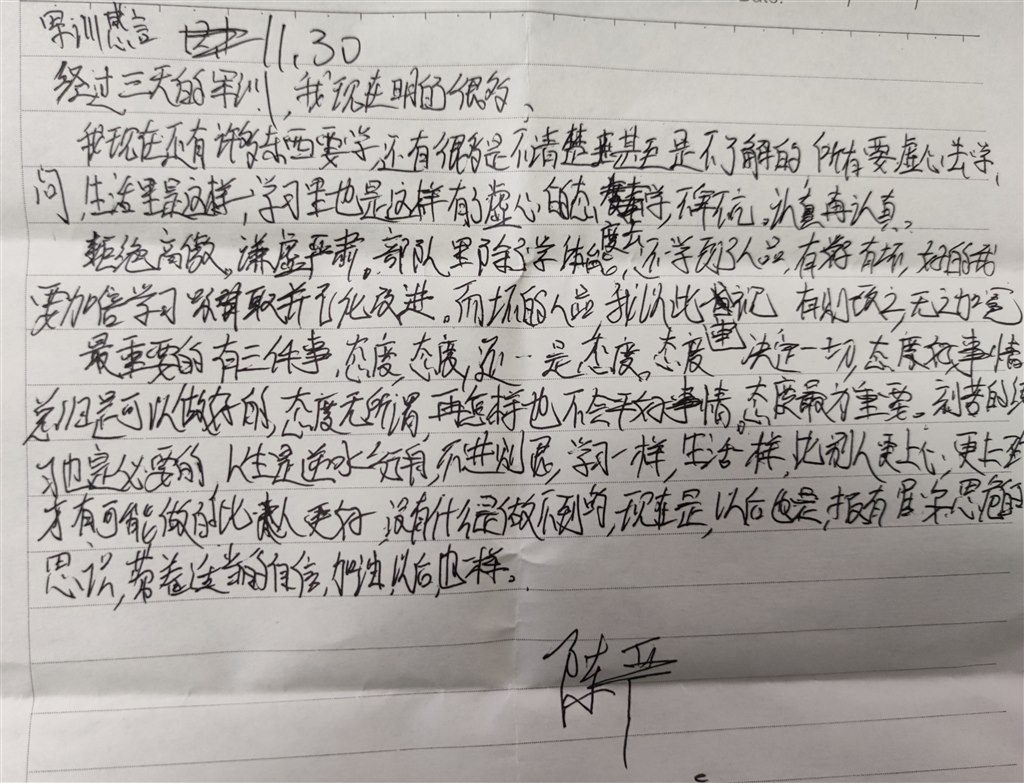 军训感言 11.30
经过三天的军训,我现在明白很多、
我现在还有许多东西要学,还有很多是不清楚甚至是不了解的 所有要虚心去学、
问,生活里是这样,学习里也是这样 有了虚心的态度去学,不卑不亢。认真再认真。
拒绝高傲。谦虚严肃。部队里除了学体能,还学到了人品,有好有坏,好的我
要加倍学习 取并了化改进。而坏的人品 我以此为记 有则改之,无之加冕
最重要的有三件事,态度,态度,还是态度。态度 决定一切,态度好事情
总归是可以做好的,态度无所谓,再怎样也不会干好事情。态度最为重要。刻苦的练
习也是必要的,人生是逆水行舟,不进则退,学习一样,生活一样,比别人更上心,更上进
才有可能做的比人更好,没有什么是做不到的,现在是,以后也是,报有居安思危的
思识,带着适当的自信,加油,以后也一样。
陈严